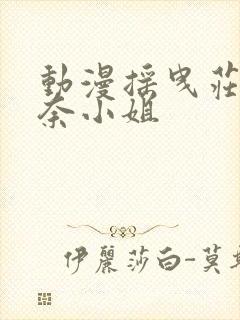 動漫搖曳莊
奈小姐
伊麗莎白-莫